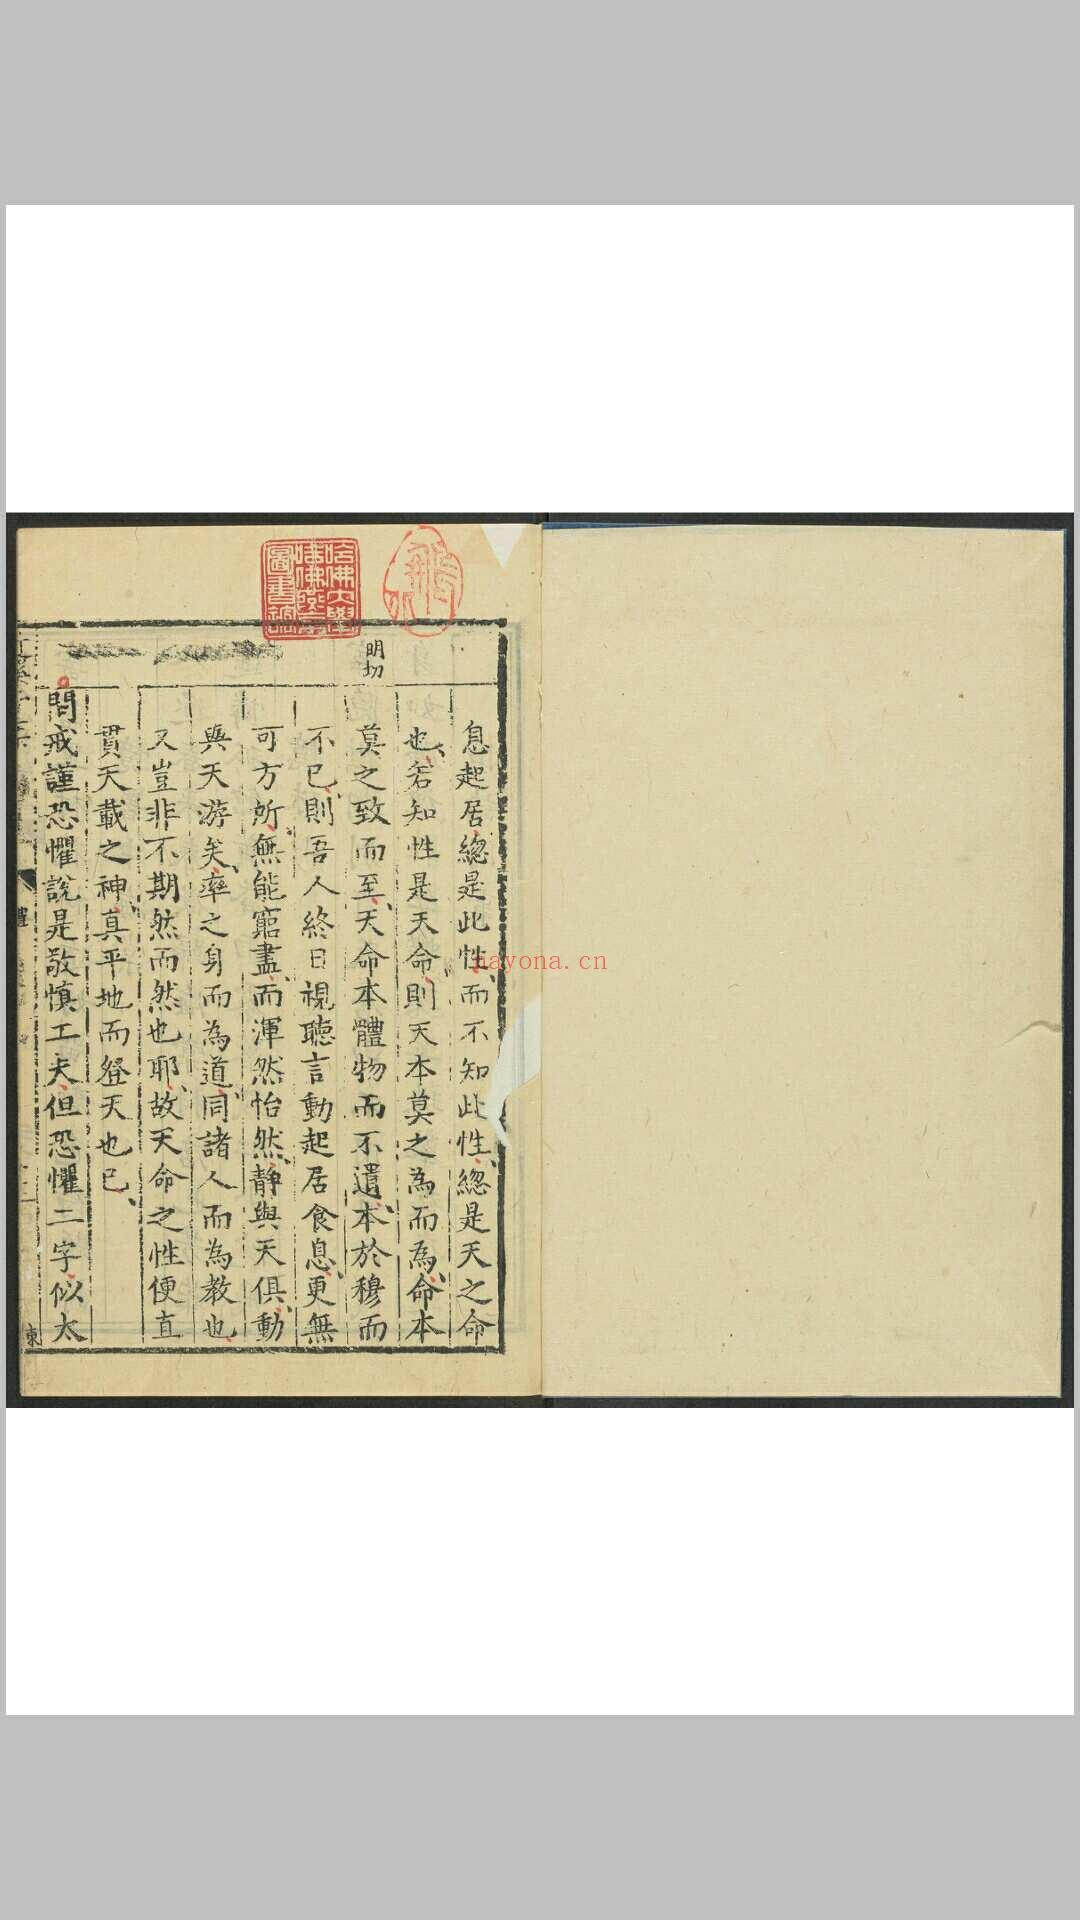 哈佛大學
哈佛燕京
圖書館
明切
息起居總是此性而不知此性總是天之命
也若知性是天命則天本莫之為而為命本
莫之致而至天命本體物而不遺本於穆而
不已則吾人終日視聽言動起居食息更無
可方所無能窮盡而渾然怡然靜與天俱動
與天游矣率之身而為道同諸人而為教也
又豈非不期然而然也耶故天命之性便直
貫天載之神真平地而登天也已
問戒謹恐懼說是敬慎工夫但恐懼二字似太
nayona.cn